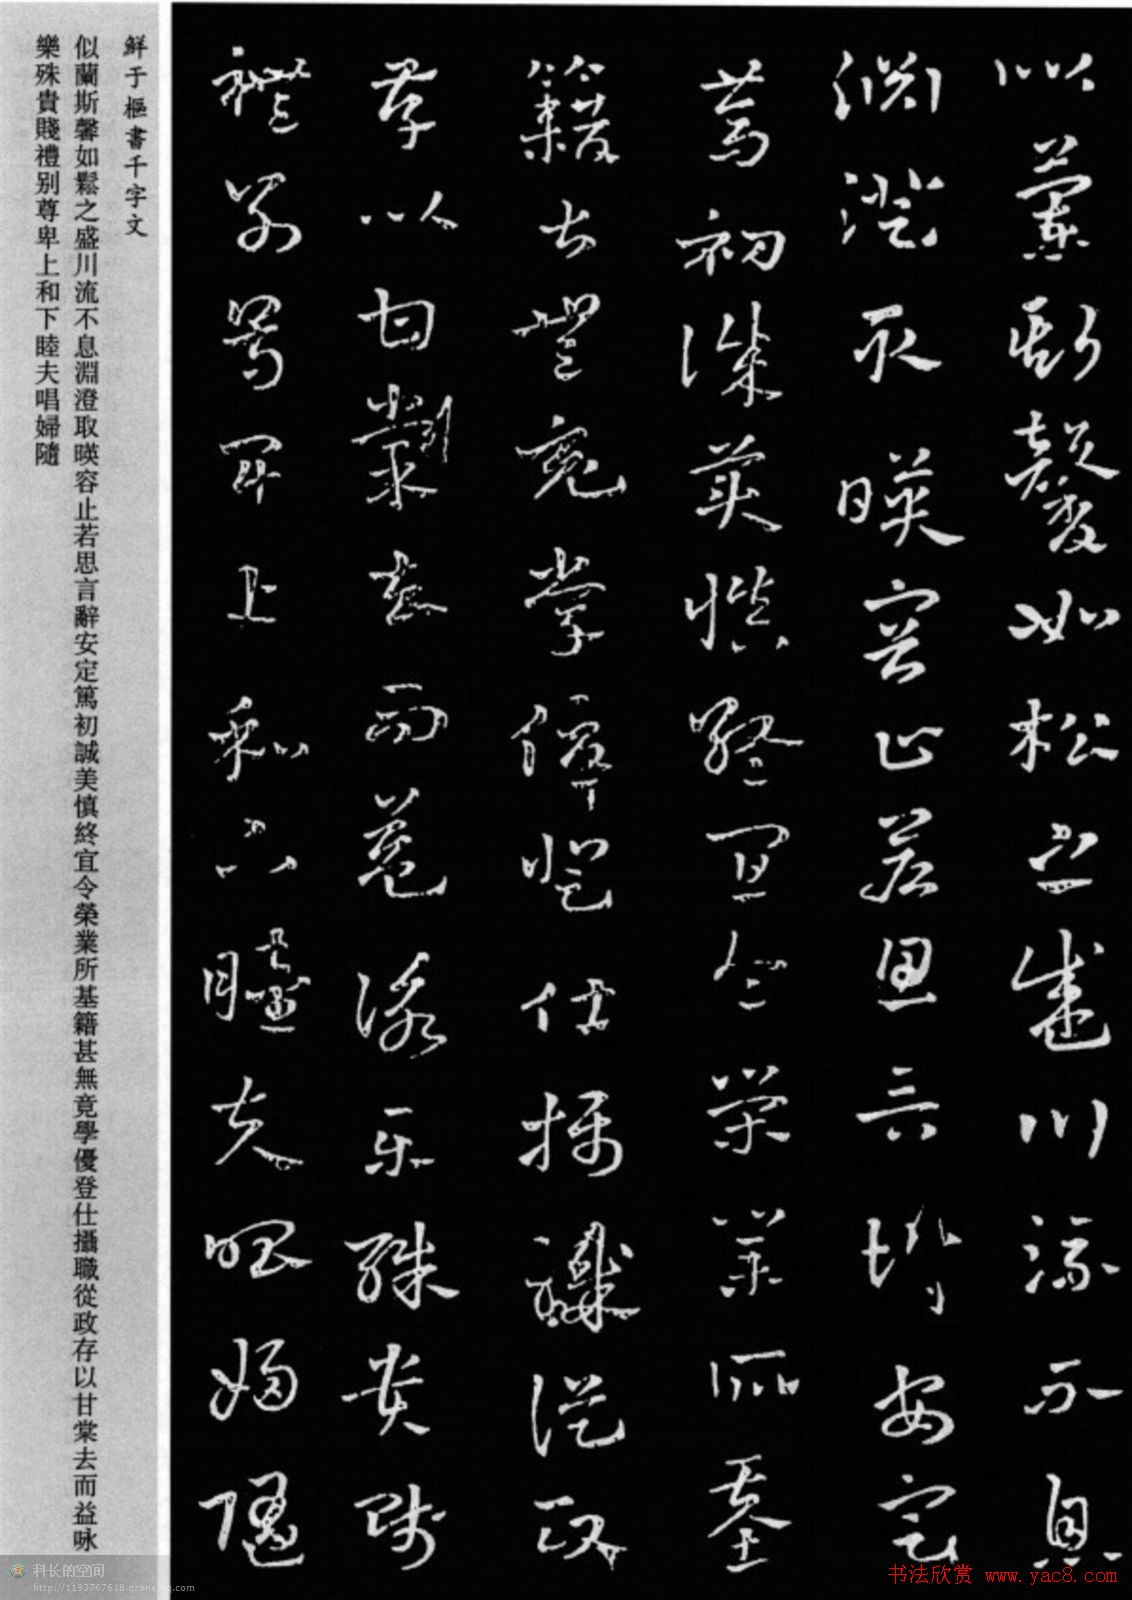 似蘭斯馨如松之盛川流不息
淵澄取暎容止若思言辭安定
篤初誠美慎終宜令榮業所基
籍甚無竟學優登仕攝職從政
存以甘棠去而益詠樂殊貴賤
禮別尊卑上和下睦夫唱婦隨
鮮于樞書千字文
似蘭斯馨如鬆之盛川流不息淵澄取暎容止若思言辭安定篤初誠美慎終宜令榮業所基籍甚無竟學優登仕攝職從政存以甘棠去而益咏
樂殊貴賤禮别尊卑上和下睦夫唱婦隨
科长的空间
http://1193767618.qzone.qq.com
书法欣赏 www.yac8.com